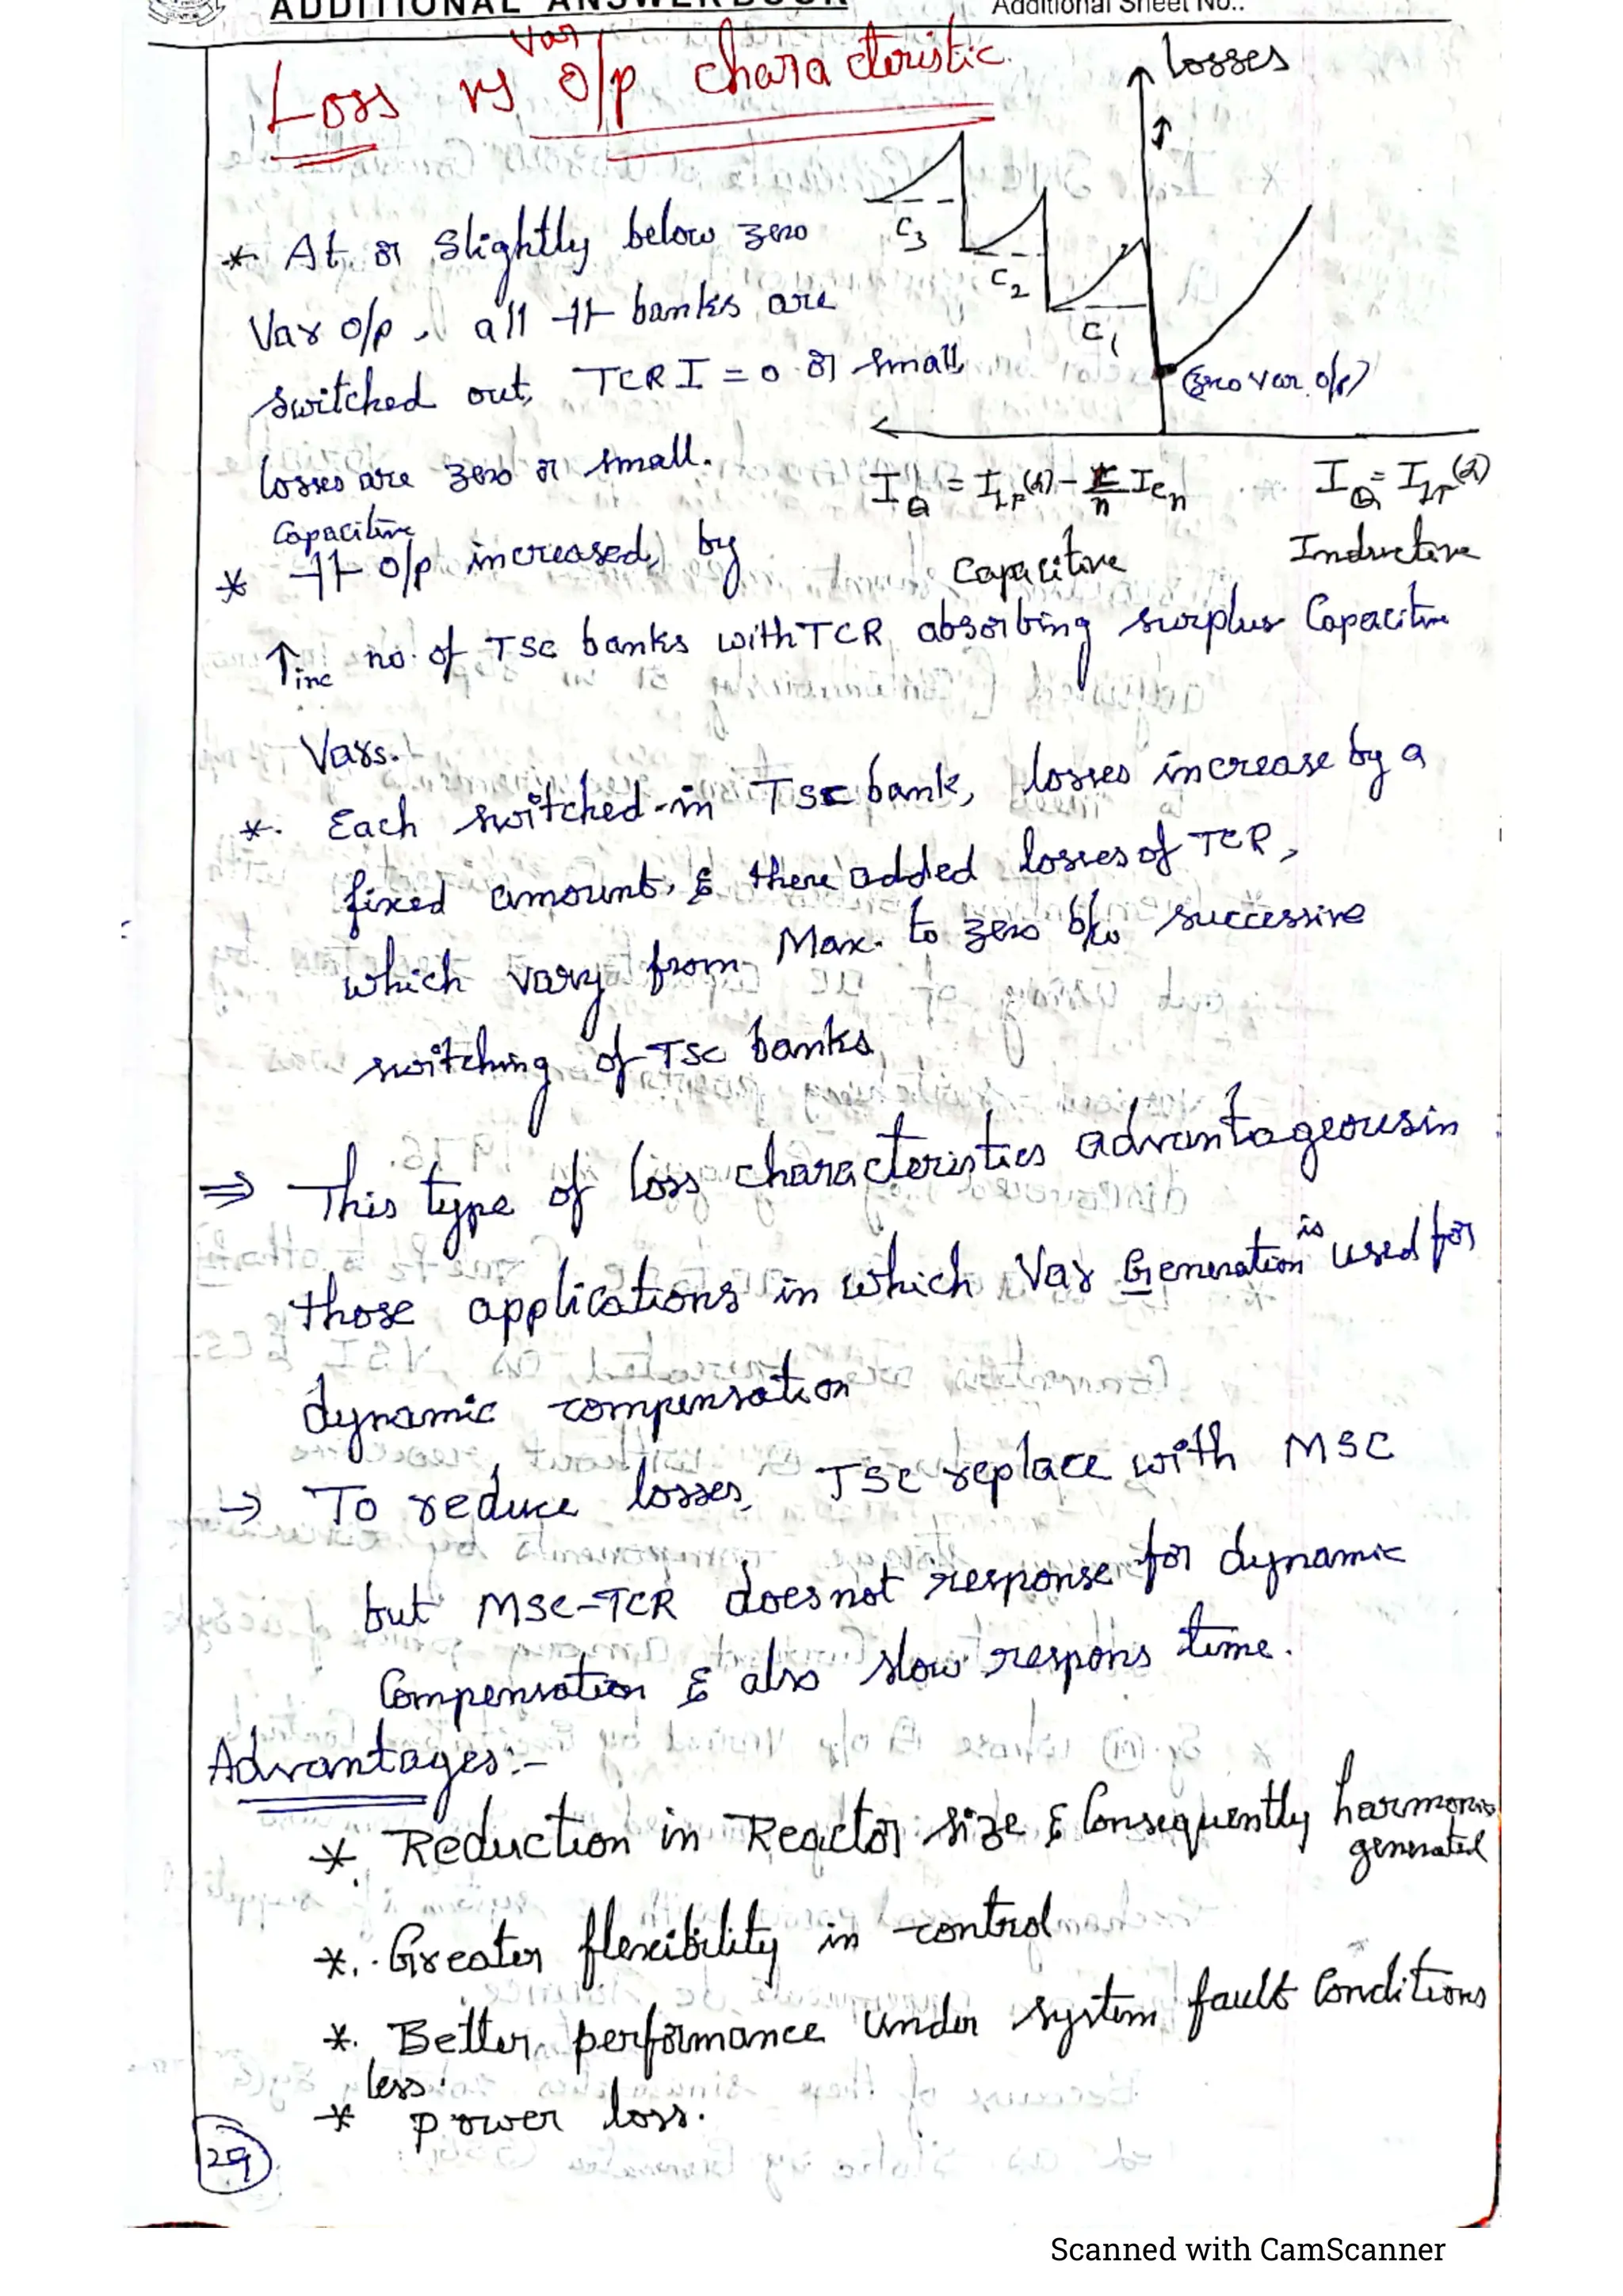 ADDITIONAL ANSWER BOOK
Additional Sheet No..
Loss vs Var o/p characteristic.
losses
C3
C2
C1
(zero var o/p)
* At or slightly below zero
Var o/p, all ⊣⊢ banks are
switched out, TCR I = 0 or small,
losses are zero or small.
IQ = ILF(α) - Σn ICn
IQ = ILF(α)
Capacitive
Inductive
Capacitive
* ⊣⊢ o/p increased, by
↑inc no. of TSC banks with TCR absorbing surplus Capacitive
Vars.
* Each switched-in TSC bank, losses increase by a
fixed amount, & there added losses of TCR,
which vary from Max. to zero b/w successive
switching of TSC banks
⇒ This type of loss characteristics advantageous in
those applications in which Var Generation is used for
dynamic compensation
→ To reduce losses, TSC replace with MSC
but MSC-TCR does not response for dynamic
Compensation & also slow respons time.
Advantages:-
* Reduction in Reactor size & Consequently harmonic
generated
* Greater flexibility in control
* Better performance under system fault Conditions
* less power loss.
29
Scanned with CamScanner